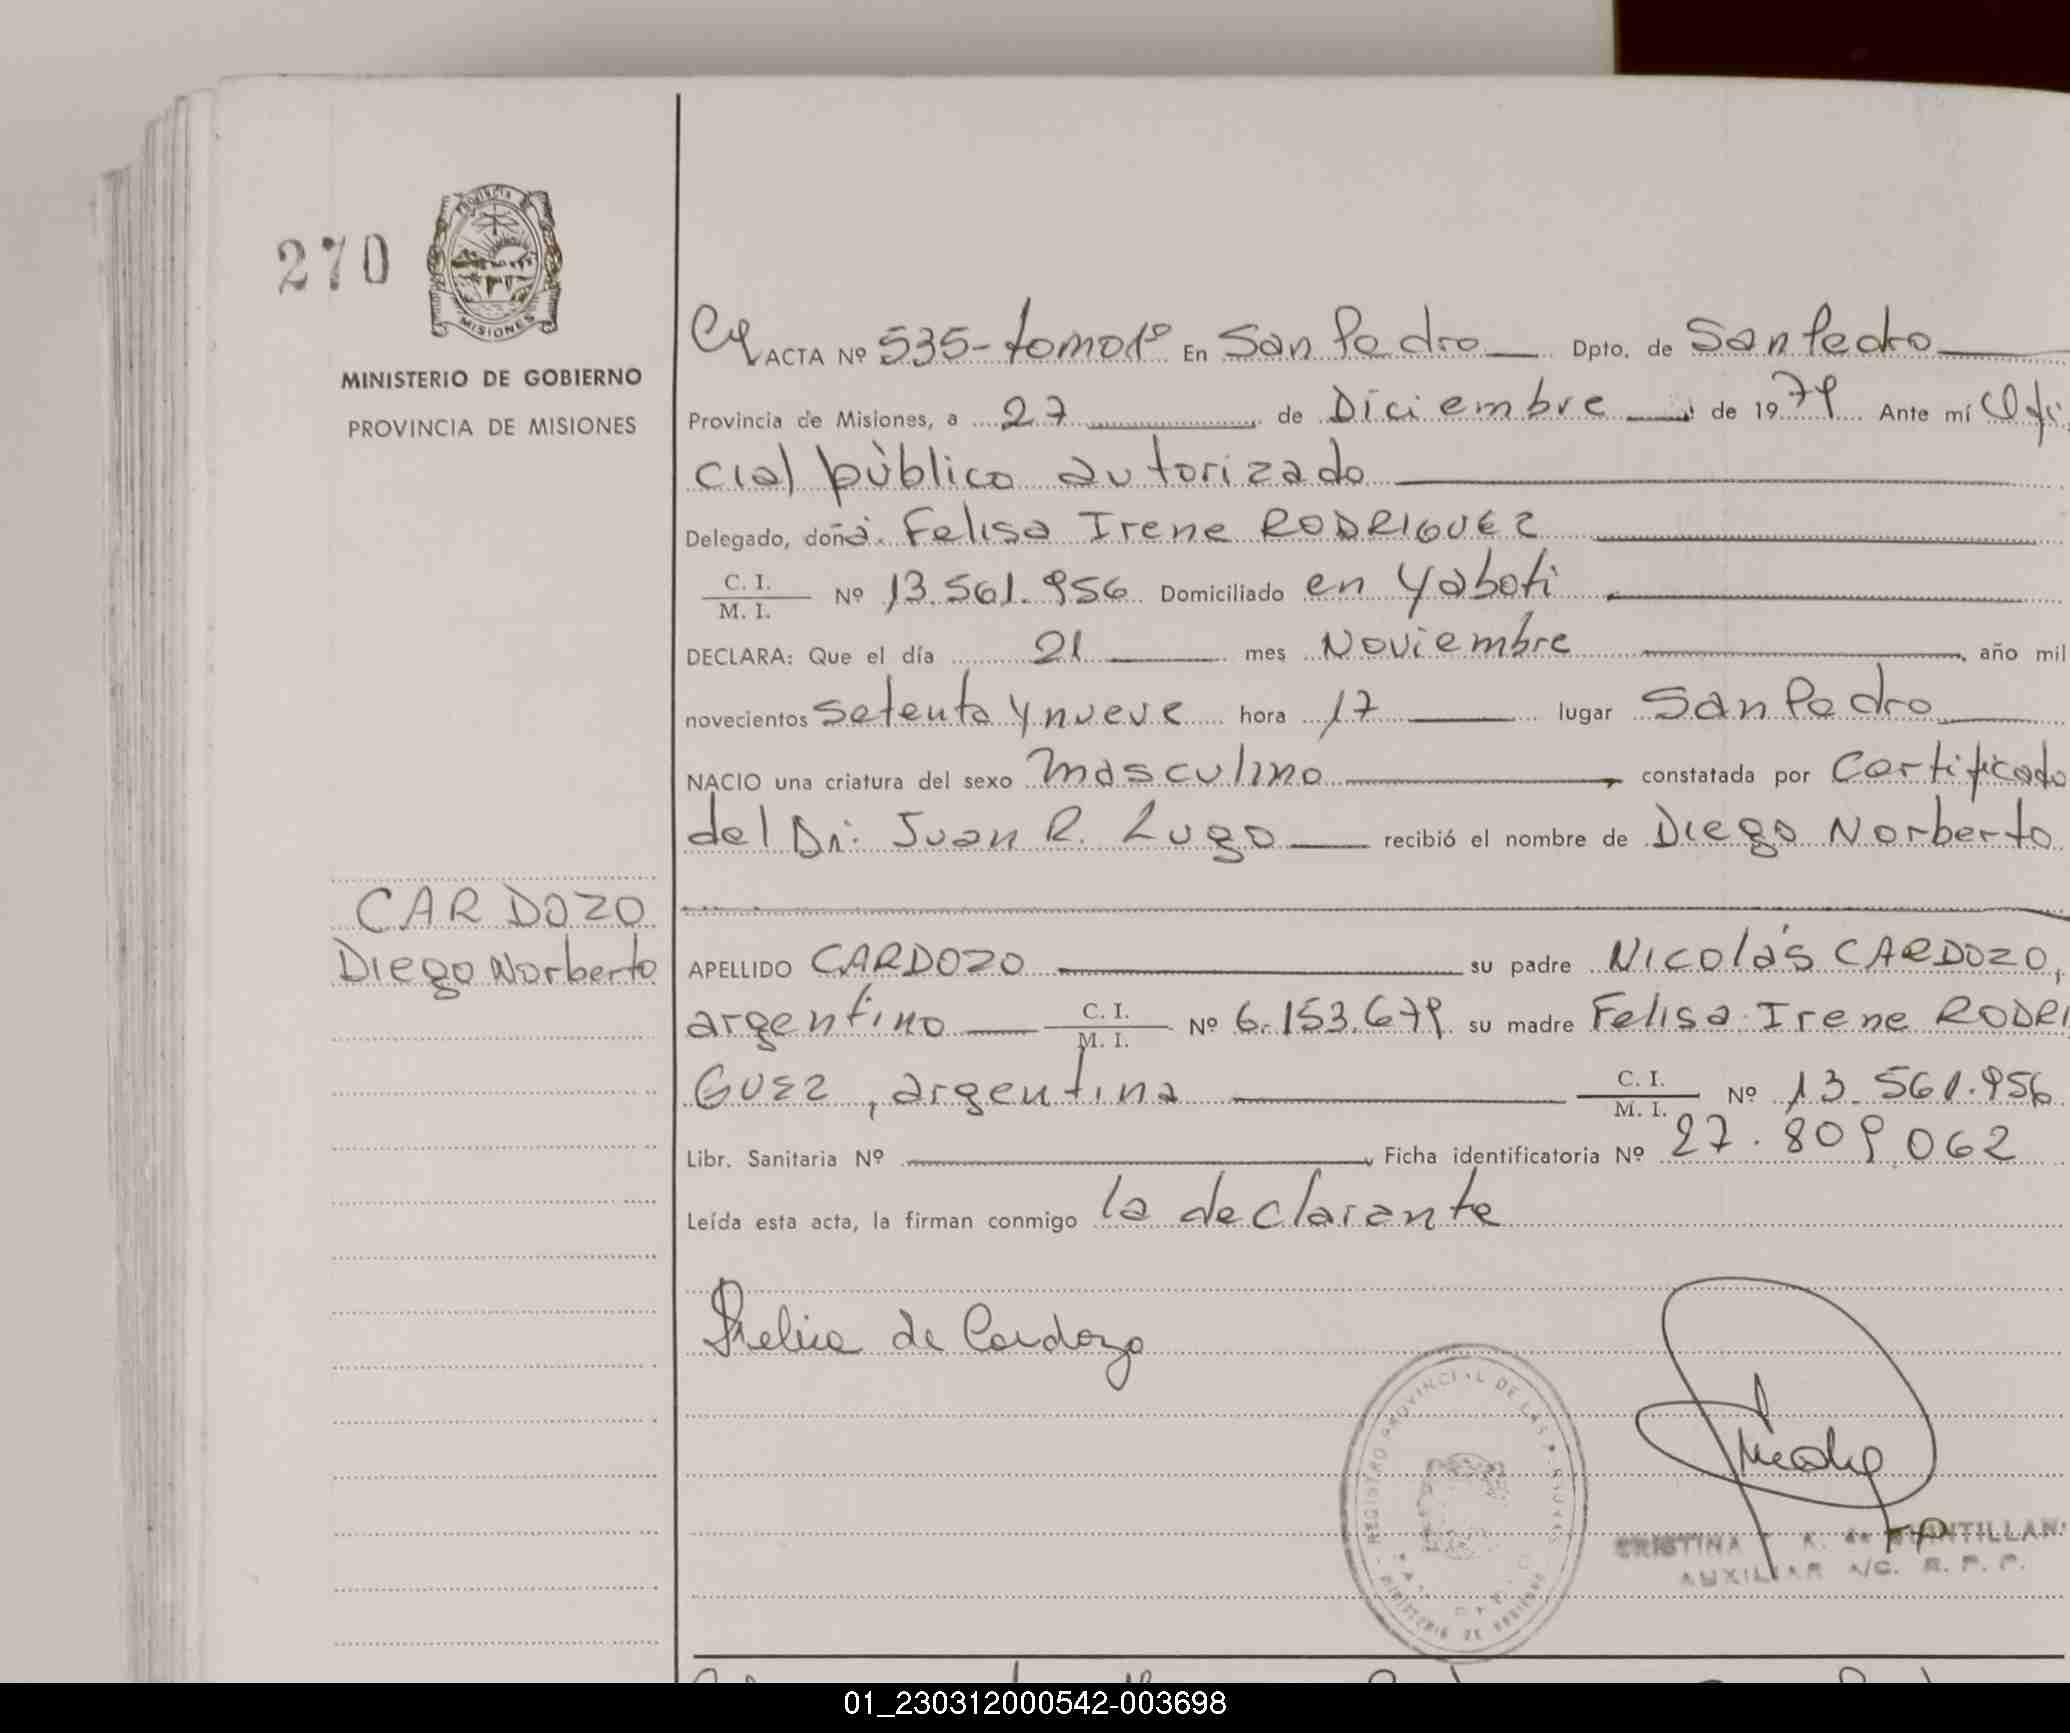 270
PROVINCIA
MISIONES
MINISTERIO DE GOBIERNO
PROVINCIA DE MISIONES
CARDOZO
Diego Norberto
ACTA Nº 535- tomo 1º En San Pedro Dpto. de San Pedro
Provincia de Misiones, a 27 de Diciembre de 1979 Ante mí Ofi
cial público autorizado
Delegado, doña Felisa Irene RODRIGUEZ
C. I.
M. I. Nº 13.561.956 Domiciliado en Yaboti
DECLARA: Que el día 21 mes Noviembre, año mil
novecientos setenta y nueve hora 17 lugar San Pedro
NACIO una criatura del sexo masculino, constatada por Certificado
del Dr: Juan R. Lugo recibió el nombre de Diego Norberto
APELLIDO CARDOZO su padre Nicolás CARDOZO,
argentino C. I.
M. I. Nº 6.153.679 su madre Felisa Irene RODRI
GUEZ, argentina C. I.
M. I. Nº 13.561.956
Libr. Sanitaria Nº, Ficha identificatoria Nº 27.809.062
Leída esta acta, la firman conmigo la declarante
de Cardozo
REGISTRO PROVINCIAL DE LAS
MINISTERIO DE GOBIERNO
CRISTINA A. de QUINTILLAN
AUXILIAR A/C. R. P. P.
01_230312000542-003698